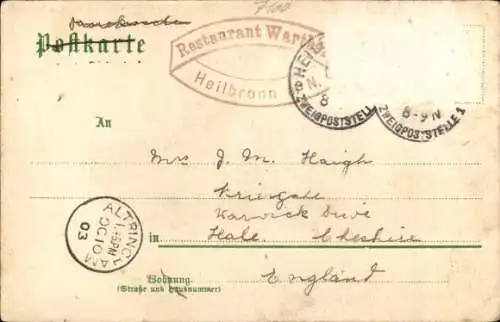 Postkarte
Restaurant Wart
Heilbronn
HE
N.
8
ZWEIGPOSTSTELL
8-9 N
ZWEIGPOSTSTELLE 1
An
Mrs J. M. Haigh
Warwick Drive
in Hale. Cheshire
England
ALTRINCHAM
OC 10
03
Wohnung
(Straße und Hausnummer)